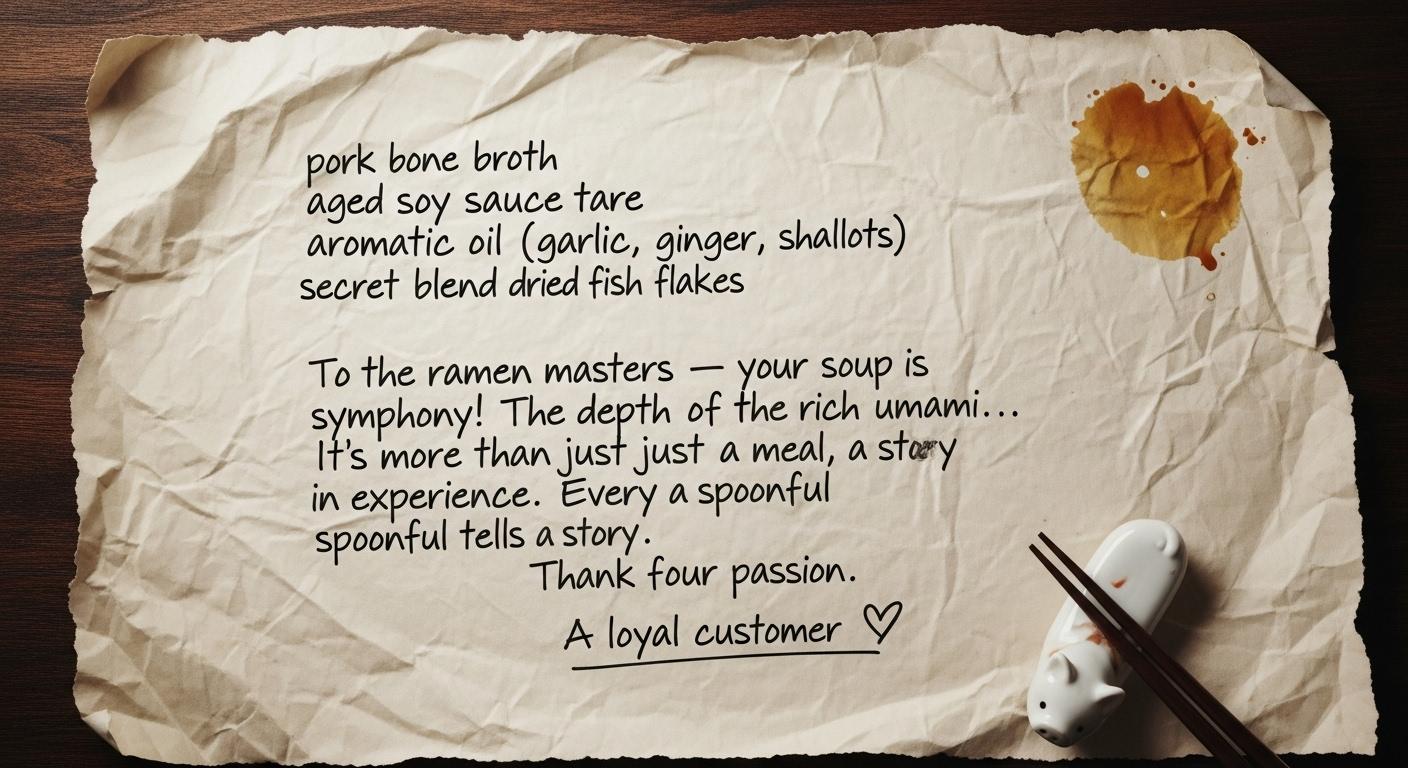 pork bone broth
aged soy sauce tare
aromatic oil (garlic, ginger, shallots)
secret blend dried fish flakes
To the ramen masters — your soup is
symphony! The depth of the rich umami...
It's more than just just a meal, a story
in experience. Every a spoonful
spoonful tells a story.
Thank four passion.
A loyal customer ♡